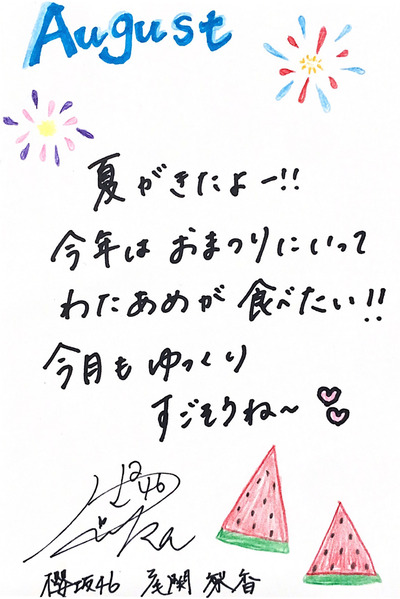 August
夏がきたよー!!
今年は おまつりにいって
わたあめが 食べたい!!
今月も ゆっくり
すごそうね〜
櫻坂46 尾関 梨香